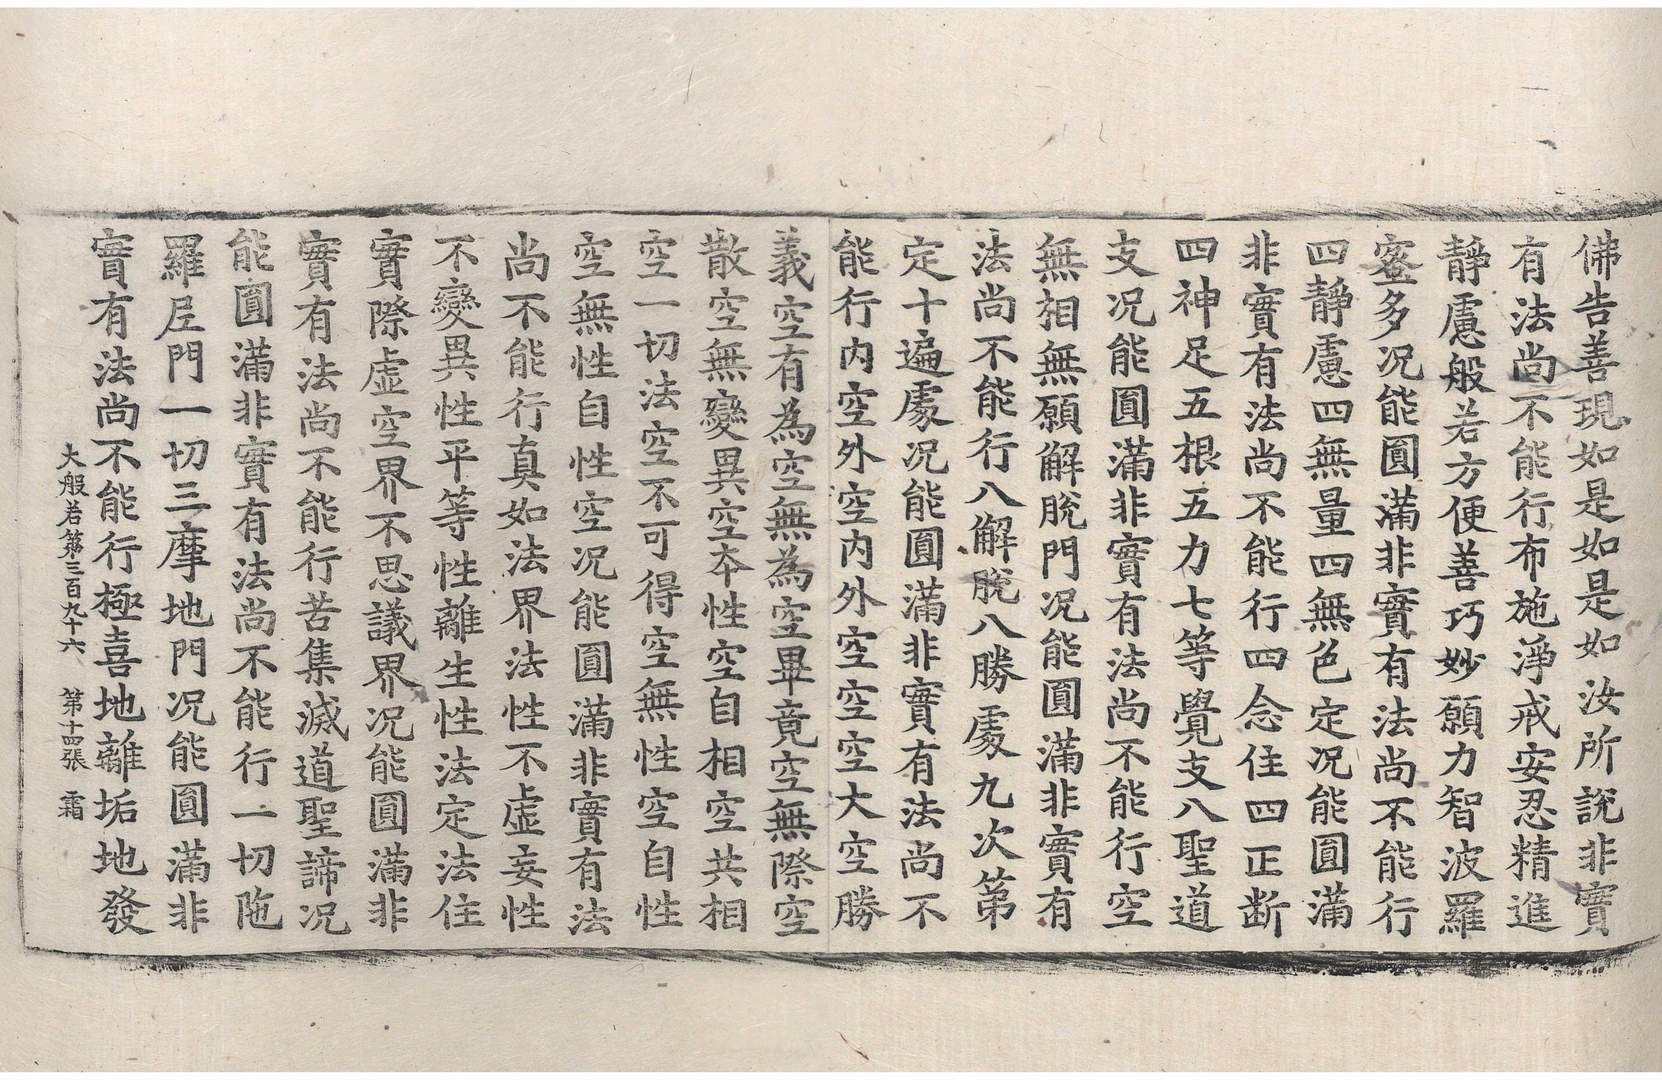 佛告善現如是如是如汝所說非實
有法尚不能行布施淨戒安忍精進
靜慮般若方便善巧妙願力智波羅
蜜多况能圓滿非實有法尚不能行
四靜慮四無量四無色定况能圓滿
非實有法尚不能行四念住四正断
四神足五根五力七等覺支八聖道
支况能圓滿非實有法尚不能行空
無相無願解脫門况能圓滿非實有
法尚不能行八解脫八勝處九次第
定十遍處况能圓滿非實有法尚不
能行内空外空内外空空空大空勝
義空有為空無為空畢竟空無際空
散空無變異空夲性空自相空共相
空一切法空不可得空無性空自性
空無性自性空况能圓滿非實有法
尚不能行真如法界法性不虛妄性
不變異性平等性離生性法定法住
實際虛空界不思議界况能圓滿非
實有法尚不能行苦集滅道聖諦况
能圓滿非實有法尚不能行一切陁
羅尼門一切三摩地門况能圓滿非
實有法尚不能行極喜地離垢地發
大般若第三百九十六 第十四張 霜